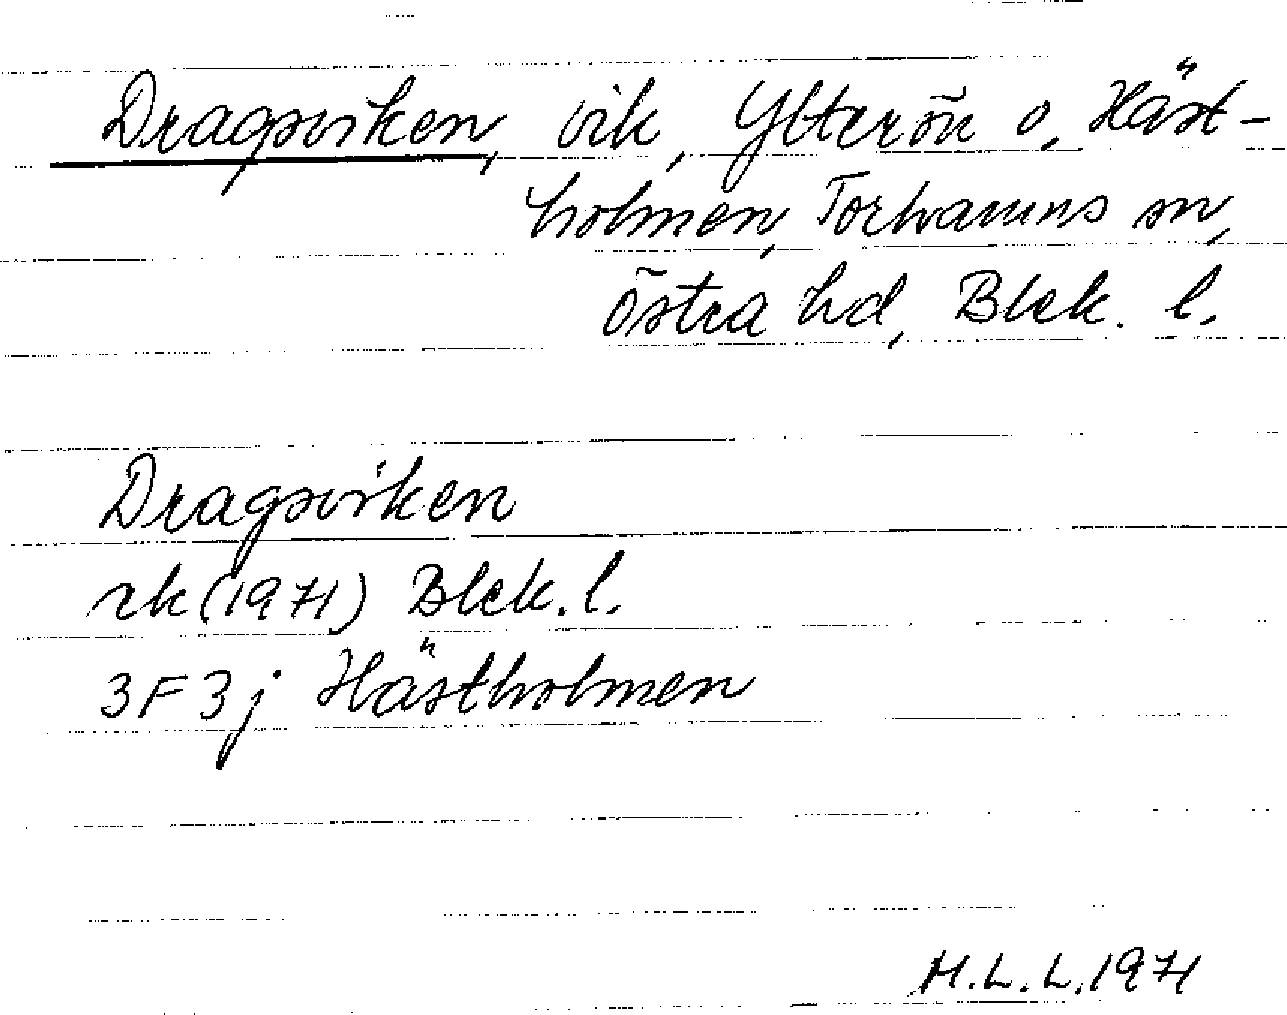 Dragsviken, vik, Ytterön o, Häst-
holmen, Torhamns sn,
Östra hd, Blek. l.
Dragsviken
rk (1971) Blek. l.
3F 3j Hästholmen
H.L.L. 1971